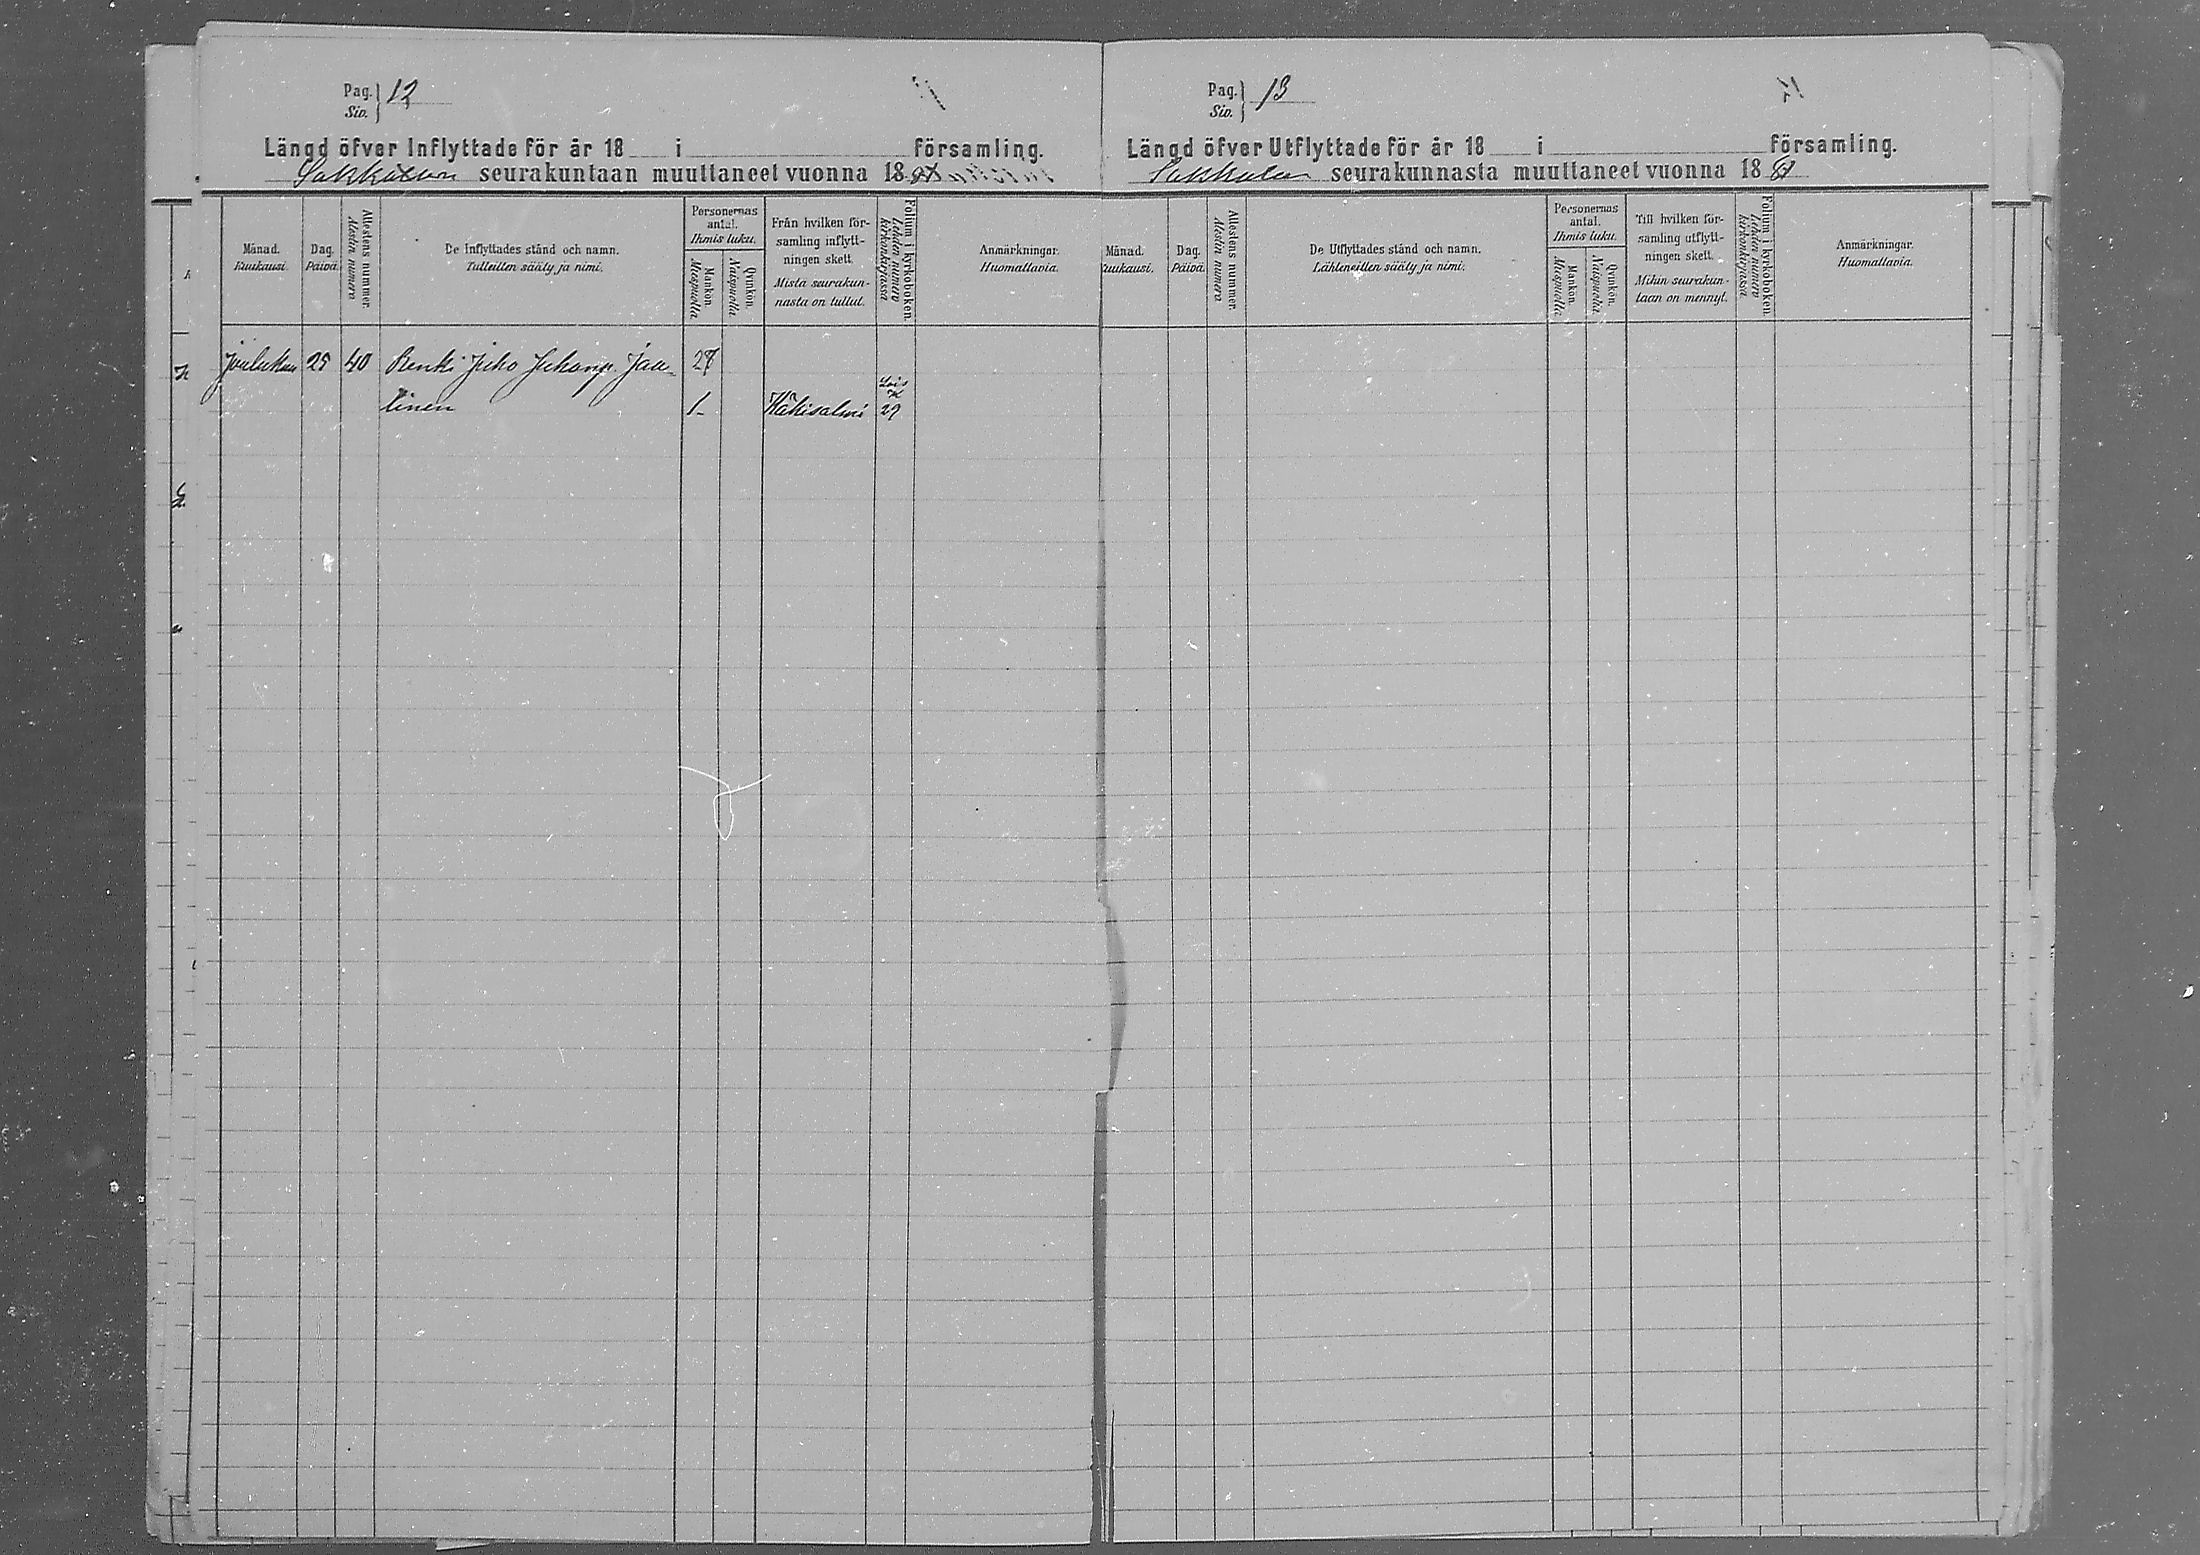 Pag. 12
Siv.
Längd öfver Inflyttade för år 18 i församling.
Sakkolan seurakuntaan muuttaneet vuonna 18
Månad. Kuukausi.
Dag. Päivä.
Attestens nummer. Attestin numero
De Inflyttades stånd och namn.
Tulleitten sääty ja nimi.
Personernas antal.
Ihmis luku.
Mankön. Miespuolia
Qvinkön. Naispuolia
Från hvilken församling inflyttningen skett.
Mistä seurakunnasta on tullut.
Folium i kyrkoboken. Lehden numero kirkonkirjassa
Anmärkningar.
Huomattavia.
Jouluku 29 40 Renki Juho Juhonp. Jaa- 27
linen 1 Käkisalmi 29
Pag. 13
Siv.
Längd öfver Utflyttade för år 18 i församling.
Sakkolan seurakunnasta muuttaneet vuonna 18
Månad. Kuukausi.
Dag. Päivä.
Attestens nummer. Attestin numero
De Utflyttades stånd och namn.
Lähteneitten sääty ja nimi.
Personernas antal.
Ihmis luku.
Mankön. Miespuolia
Qvinkön. Naispuolia
Till hvilken församling utflyttningen skett.
Mihin seurakuntaan on mennyt.
Folium i kyrkoboken. Lehden numero kirkonkirjassa
Anmärkningar.
Huomattavia.